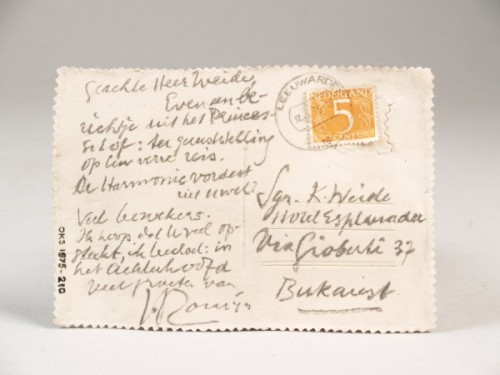 Geachte Heer Weide,
Even een be-
richtje uit het Princes-
sehof: ter geruststelling
op Uw verre reis.
De Harmonie vordert
Veel bezoekers.
Ik hoop dat U veel op-
steekt, ik bedoel: in
het achterhoofd
Veel groeten van
OKS 1975-210
LEEUWARDEN
NEDERLAND
5
CENT
Sgr. K. Weide
Hotel Esplanade
Via Gioberti 37
Bukarest